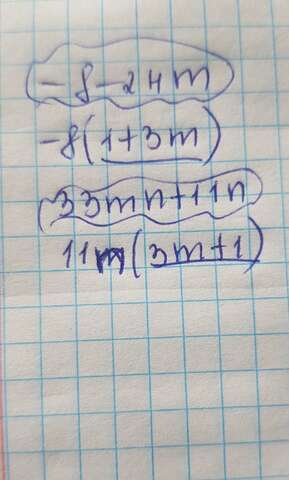 -8-24m
-8(1+3m)
(33mn+11n
11m(3m+1)